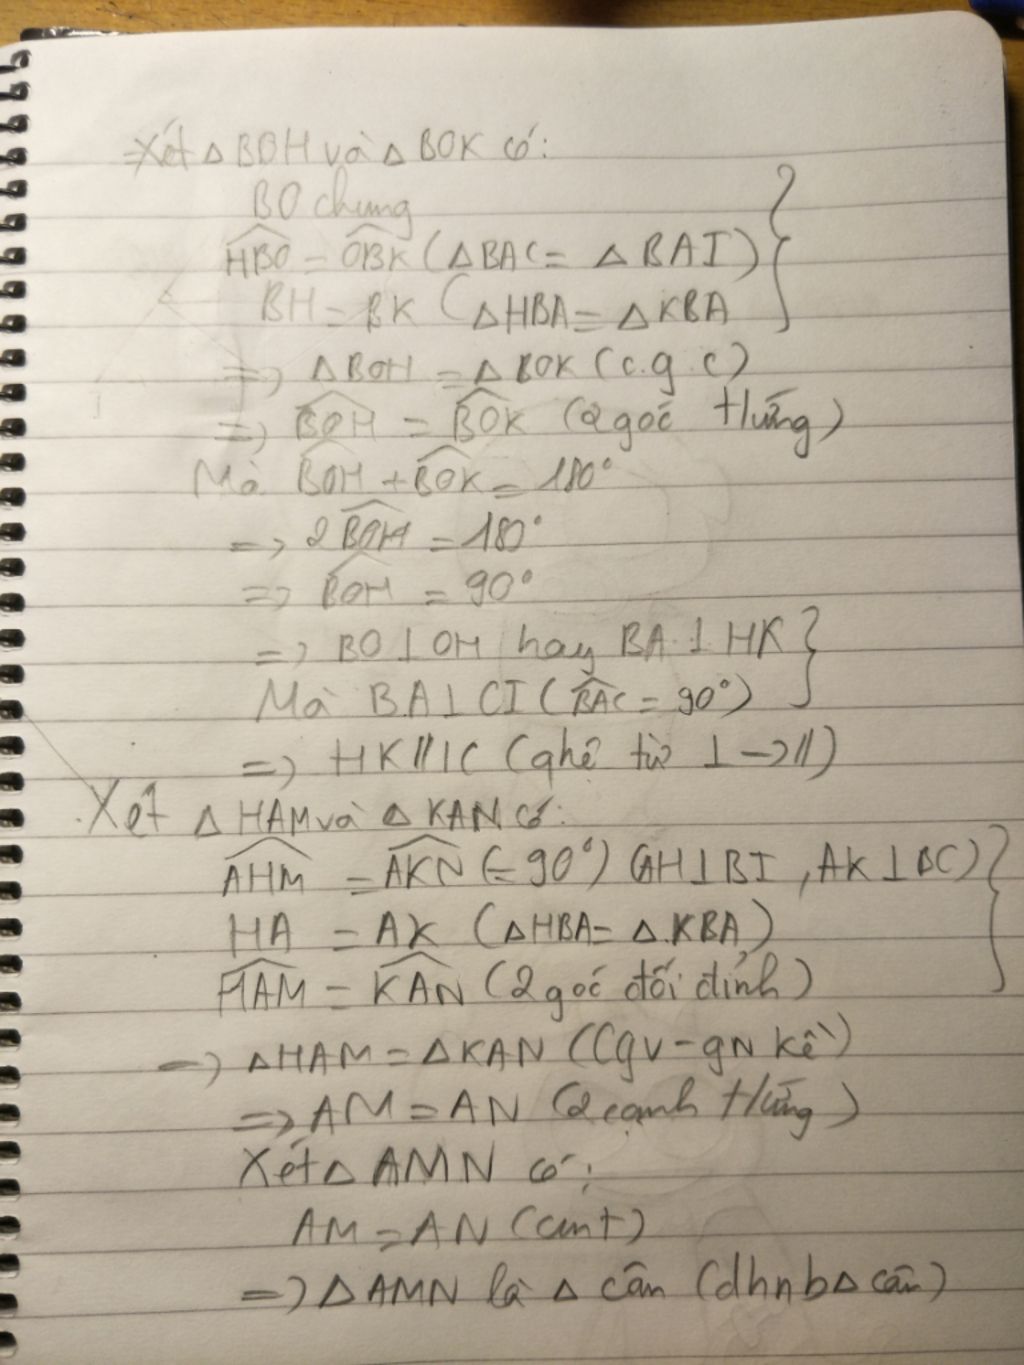 =Xét △BOH và △BOK có:
BO chung
HBO = OBK (△BAC = △BAI)
BH = BK (△HBA = △KBA
=> △BOH = △BOK (c.g.c)
=> BOH = BOK (2 góc tứng)
Mà BOH + BOK = 180°
=> 2BOH = 180°
=> BOH = 90°
=> BO⊥OH hay BA⊥HK
Mà BA⊥CI (BAC = 90°)
=> HK//IC (qhệ từ ⊥→//)
Xét △HAM và △KAN có:
AHM = AKN (=90°) (AH⊥BI, AK⊥BC)
HA = AK (△HBA = △KBA)
HAM = KAN (2 góc đối đỉnh)
=> △HAM = △KAN (Cgv-gN kề)
=> AM = AN (2 cạnh tứng)
Xét △AMN có:
AM = AN (cmt)
=> △AMN là △ cân (dhnb△ cân)